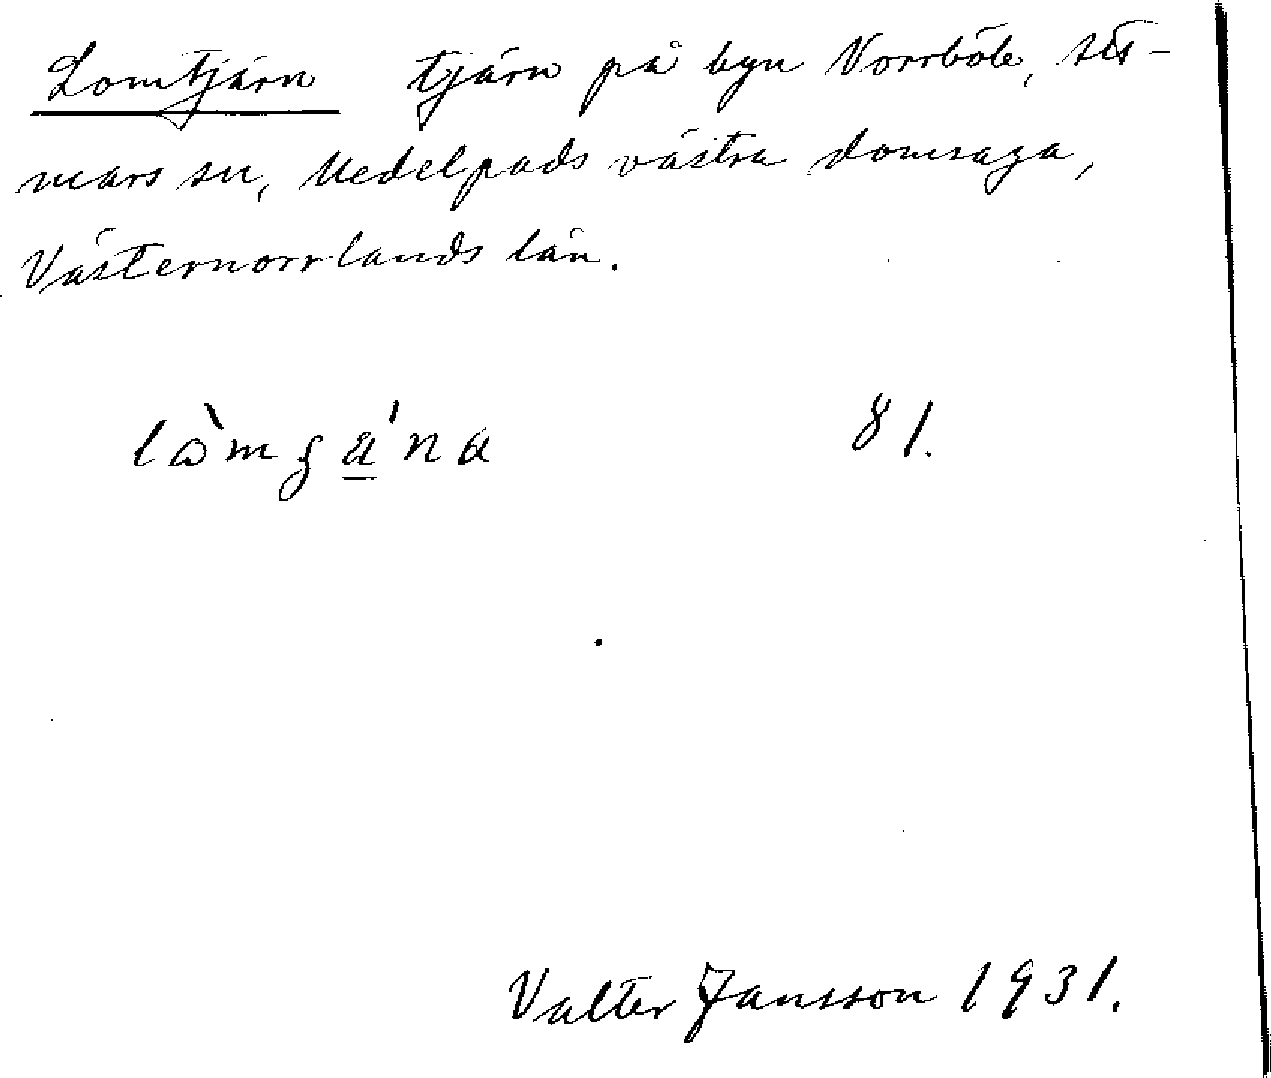 Lomtjärn tjärn på byn Vorrböle, Att-
mars sn, Medelpads västra domsaga,
Västernorrlands län.
81.
Valter Jansson 1931.